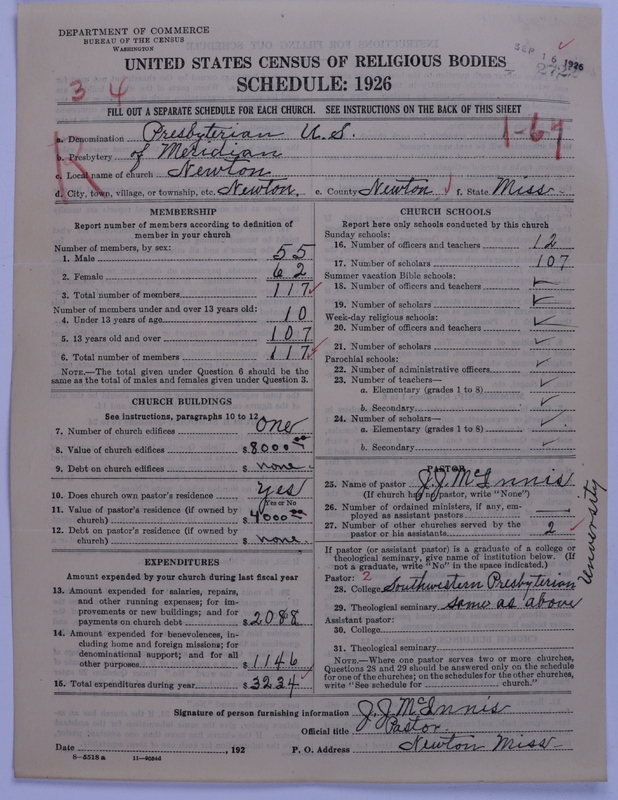 DEPARTMENT OF COMMERCE
BUREAU OF THE CENSUS
WASHINGTON
SEP 16 1926
UNITED STATES CENSUS OF RELIGIOUS BODIES
SCHEDULE: 1926
3 4
FILL OUT A SEPARATE SCHEDULE FOR EACH CHURCH. SEE INSTRUCTIONS ON THE BACK OF THIS SHEET
a. Denomination Presbyterian U.S.
1-64
b. Presbytery of Meridian
c. Local name of church Newton
d. City, town, village, or township, etc. Newton, e. County Newton f. State Miss
MEMBERSHIP
Report number of members according to definition of
member in your church
Number of members, by sex:
1. Male 55
2. Female 62
3. Total number of members 117
Number of members under and over 13 years old:
4. Under 13 years of age 10
5. 13 years old and over 107
6. Total number of members 117
NOTE.—The total given under Question 6 should be the
same as the total of males and females given under Question 3.
CHURCH BUILDINGS
See instructions, paragraphs 10 to 12
7. Number of church edifices One
8. Value of church edifices $8000 00
9. Debt on church edifices $ none
10. Does church own pastor's residence Yes
Yes or No
11. Value of pastor's residence (if owned by
church) $4000 00
12. Debt on pastor's residence (if owned by
church) $ none
EXPENDITURES
Amount expended by your church during last fiscal year
13. Amount expended for salaries, repairs,
and other running expenses; for im-
provements or new buildings; and for
payments on church debt $2088
14. Amount expended for benevolences, in-
cluding home and foreign missions; for
denominational support; and for all
other purposes $1146
15. Total expenditures during year $3234
CHURCH SCHOOLS
Report here only schools conducted by this church
Sunday schools:
16. Number of officers and teachers 12
17. Number of scholars 107
Summer vacation Bible schools:
18. Number of officers and teachers
19. Number of scholars
Week-day religious schools:
20. Number of officers and teachers
21. Number of scholars
Parochial schools:
22. Number of administrative officers
23. Number of teachers—
a. Elementary (grades 1 to 8)
b. Secondary
24. Number of scholars—
a. Elementary (grades 1 to 8)
b. Secondary
PASTOR
25. Name of pastor J.J. McInnis
(If church has no pastor, write "None")
26. Number of ordained ministers, if any, em-
ployed as assistant pastors
27. Number of other churches served by the
pastor or his assistants 2
If pastor (or assistant pastor) is a graduate of a college or
theological seminary, give name of institution below. (If
not a graduate, write "No" in the space indicated.)
Pastor: 2
28. College Southwestern Presbyterian University
29. Theological seminary same as above
Assistant pastor:
30. College
31. Theological seminary
NOTE.—Where one pastor serves two or more churches,
Questions 28 and 29 should be answered only on the schedule
for one of the churches; on the schedules for the other churches,
write "See schedule for church."
Signature of person furnishing information J.J. McInnis
Official title Pastor
Date , 192 P. O. Address Newton Miss
8-5518 a 11-90546